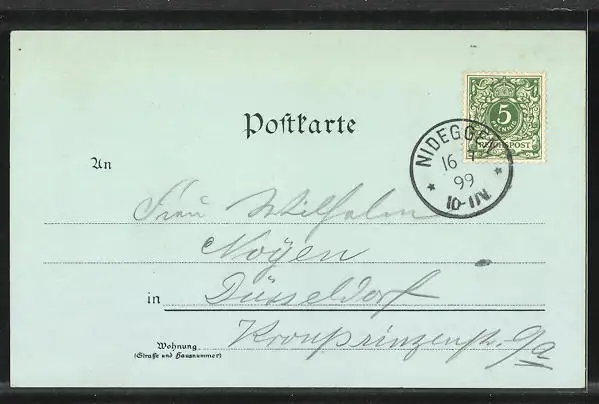 Postkarte
5
PFENNIG
REICHSPOST
NIDEGGEN
16
99
10-11N.
An
Frau Wilhelm
Noyen
in Düsseldorf
Wohnung Kronprinzenstr. 9/a
(Straße und Hausnummer)